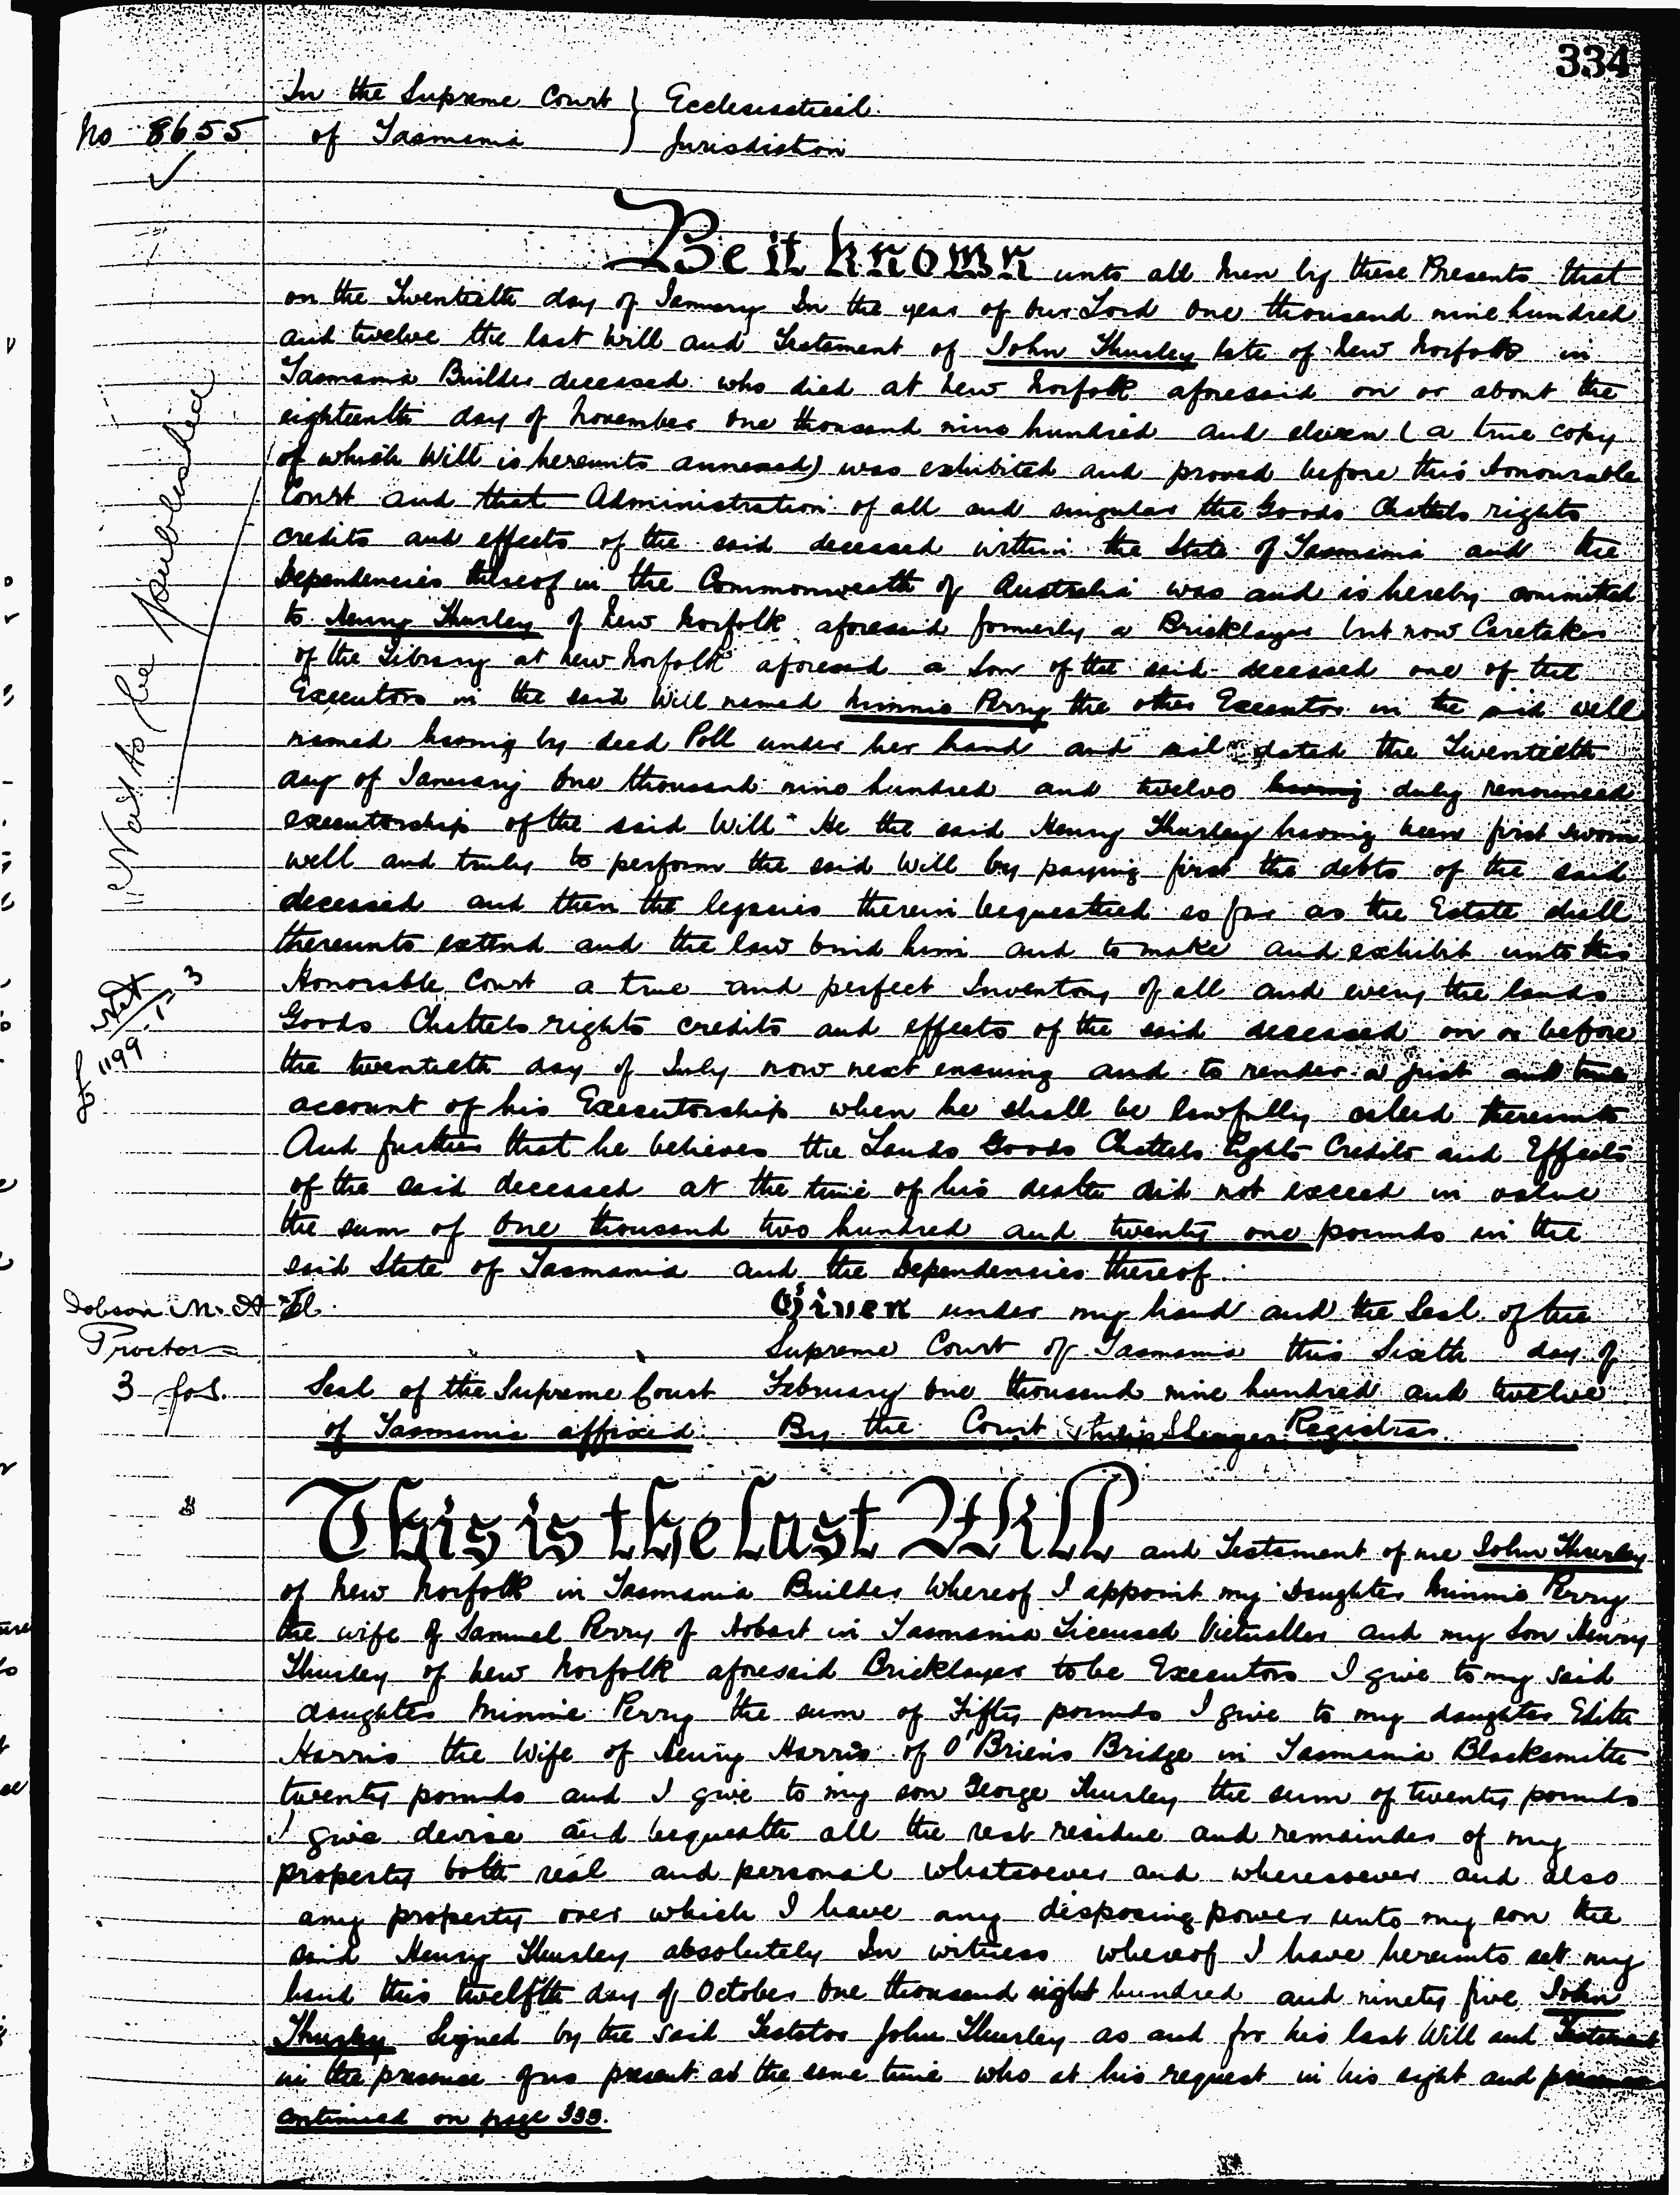 334
In the Supreme Court } Ecclesiastical
No 8655
of Tasmania } Jurisdiction
Be it known unto all Men by these Presents that
on the Twentieth day of January In the year of Our Lord One thousand nine hundred
and twelve the last Will and Testament of John Thurley late of New Norfolk in
Tasmania Builder deceased who died at New Norfolk aforesaid on or about the
eighteenth day of November One thousand nine hundred and eleven (a true copy
of which Will is hereunto annexed) was exhibited and proved before this Honourable
Court and that Administration of all and singular the Goods Chattels rights
credits and effects of the said deceased within the State of Tasmania and the
Dependencies thereof in the Commonwealth of Australia was and is hereby committed
to Henry Thurley of New Norfolk aforesaid formerly a Bricklayer but now Caretaker
of the Library at New Norfolk aforesaid a Son of the said deceased one of the
Executors in the said Will named Minnie Perry the other Executor in the said will
named having by deed Poll under her hand and seal dated the Twentieth
day of January One thousand nine hundred and twelve having duly renounced
executorship of the said Will He the said Henry Thurley having been first sworn
well and truly to perform the said Will by paying first the debts of the said
deceased and then the legacies therein bequeathed so far as the Estate shall
thereunto extend and the law bind him and to make and exhibit unto this
Honorable Court a true and perfect Inventory of all and every the lands
Goods Chattels rights credits and effects of the said deceased on or before
the twentieth day of July now next ensuing and to render a just and true
account of his Executorship when he shall be lawfully called thereunto
And further that he believes the Lands Goods Chattels Rights Credits and Effects
of the said deceased at the time of his death did not exceed in value
the sum of One thousand two hundred and twenty one pounds in the
said State of Tasmania and the Dependencies thereof.
Not to be published
Net
£1199
Dobson M. &
Proctors
3 fos.
Given under my hand and the Seal of the
Supreme Court of Tasmania this Sixth day of
Seal of the Supreme Court February One thousand nine hundred and twelve
of Tasmania affixed. By the Court Registrar.
This is the last Will and Testament of me John Thurley
of New Norfolk in Tasmania Builder Whereof I appoint my Daughter Minnie Perry
the wife of Samuel Perry of Hobart in Tasmania Licensed Victualler and my Son Henry
Thurley of New Norfolk aforesaid Bricklayer to be Executors I give to my said
daughter Minnie Perry the sum of Fifty pounds I give to my daughter Edith
Harris the Wife of Henry Harris of O'Briens Bridge in Tasmania Blacksmith
twenty pounds and I give to my son George Thurley the sum of twenty pounds
I give devise and bequeath all the rest residue and remainder of my
property both real and personal whatsoever and wheresoever and also
any property over which I have any disposing power unto my son the
said Henry Thurley absolutely In witness whereof I have hereunto set my
hand this twelfth day of October One thousand eight hundred and ninety five John
Thurley Signed by the said Testator John Thurley as and for his last Will and Testament
in the presence of us present at the same time who at his request in his sight and presence
continued on page 335.